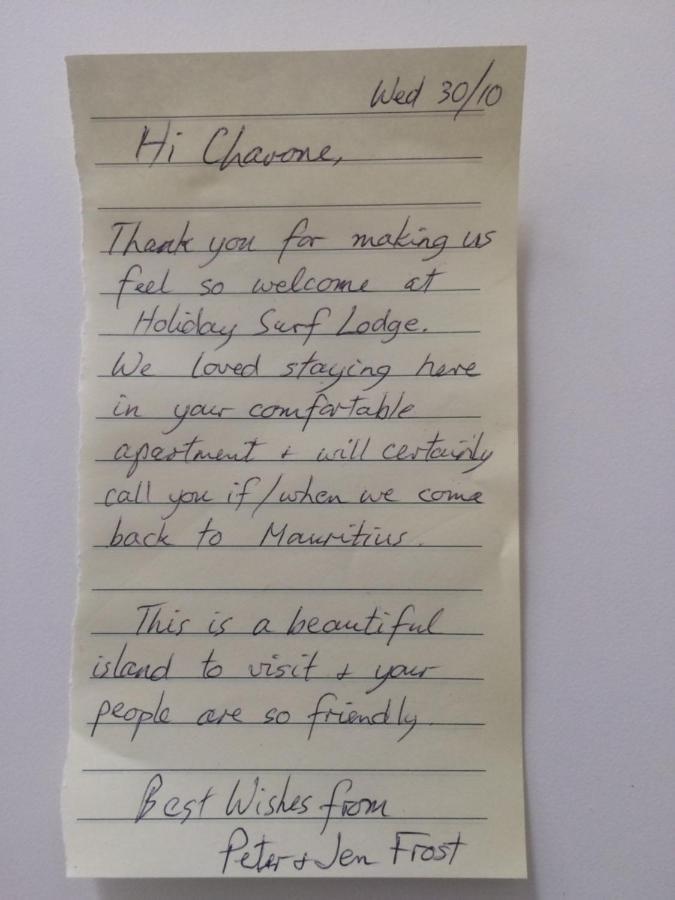 Wed 30/10
Hi Chavone,
Thank you for making us
feel so welcome at
Holiday Surf Lodge.
We loved staying here
in your comfortable
apartment + will certainly
call you if/when we come
back to Mauritius.
This is a beautiful
island to visit + your
people are so friendly.
Best Wishes from
Peter + Jen Frost